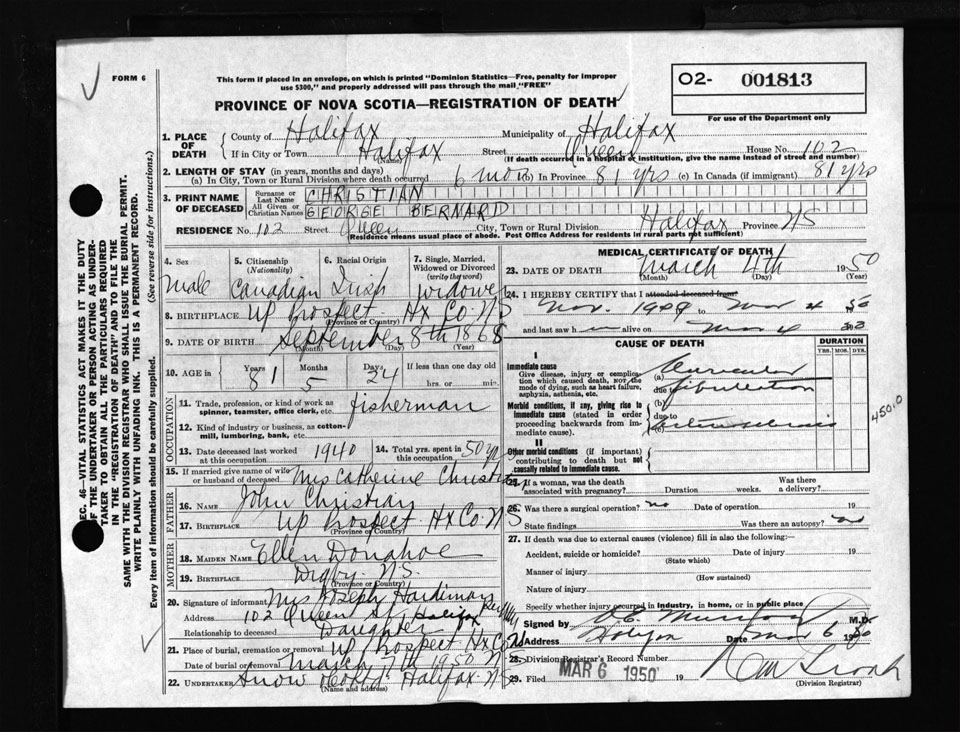 FORM 6
This form if placed in an envelope, on which is printed "Dominion Statistics—Free, penalty for improper
use $300," and properly addressed will pass through the mail "FREE"
PROVINCE OF NOVA SCOTIA—REGISTRATION OF DEATH
O2- 001813
For use of the Department only
SEC. 46—VITAL STATISTICS ACT MAKES IT THE DUTY
OF THE UNDERTAKER OR PERSON ACTING AS UNDER-
TAKER TO OBTAIN ALL THE PARTICULARS REQUIRED
IN THE "REGISTRATION OF DEATH" AND TO FILE THE
SAME WITH THE DIVISION REGISTRAR WHO SHALL ISSUE THE BURIAL PERMIT.
WRITE PLAINLY WITH UNFADING INK. THIS IS A PERMANENT RECORD.
Every item of information should be carefully supplied. (See reverse side for instructions.)
1. PLACE OF DEATH
County of Halifax Municipality of Halifax
If in City or Town Halifax Street Queen House No. 102
(Name) (If death occurred in a hospital or institution, give the name instead of street and number)
2. LENGTH OF STAY (in years, months and days)
(a) In City, Town or Rural Division where death occurred 6 mos (b) In Province 81 yrs (c) In Canada (if immigrant) 81 yrs
3. PRINT NAME OF DECEASED
Surname or Last Name CHRISTIAN
All Given or Christian Names GEORGE BERNARD
RESIDENCE No. 102 Street Queen City, Town or Rural Division Halifax Province NS
(Residence means usual place of abode. Post Office Address for residents in rural parts not sufficient)
4. Sex Male
5. Citizenship (Nationality) Canadian
6. Racial Origin Irish
7. Single, Married, Widowed or Divorced (write the word) widower
8. BIRTHPLACE Up Prospect Hx Co. NS
(Province or Country)
9. DATE OF BIRTH September 8th 1868
(Month) (Day) (Year)
10. AGE in Years 81 Months 5 Days 24 If less than one day old hrs. or min.
OCCUPATION
11. Trade, profession, or kind of work as spinner, teamster, office clerk, etc. fisherman
12. Kind of industry or business, as cotton-mill, lumbering, bank, etc.
13. Date deceased last worked at this occupation 1940 14. Total yrs. spent in this occupation 50 yr
15. If married give name of wife or husband of deceased Mrs Catherine Christian
FATHER
16. NAME John Christian
17. BIRTHPLACE Up Prospect Hx Co. NS
(Province or Country)
MOTHER
18. MAIDEN NAME Ellen Donahoe
19. BIRTHPLACE Digby N.S.
(Province or Country)
20. Signature of informant Mrs Joseph Hardiman
Address 102 Queen St. Halifax
Relationship to deceased Daughter
21. Place of burial, cremation or removal Up Prospect Hx Co NS
Date of burial or removal March 7th 1950
22. UNDERTAKER Snow Halifax NS
(Name and address)
MEDICAL CERTIFICATE OF DEATH
23. DATE OF DEATH March 4th 1950
(Month) (Day) (Year)
24. I HEREBY CERTIFY that I attended deceased from:
Nov. 1949 to Mar 4 50
and last saw h im alive on Mar 4
CAUSE OF DEATH
DURATION
YRS. MOS. DYS.
I
Immediate cause
Give disease, injury or complication which caused death, NOT the mode of dying, such as heart failure, asphyxia, asthenia, etc.
(a) Auricular
due to fibrillation
(b)
Morbid conditions, if any, giving rise to immediate cause (stated in order proceeding backwards from immediate cause).
due to
(c) arteriosclerosis
450.0
II
Other morbid conditions (if important) contributing to death but not causally related to immediate cause.
25. If a woman, was the death associated with pregnancy? Duration weeks. Was there a delivery?
26. Was there a surgical operation? no Date of operation 19
State findings Was there an autopsy? no
27. If death was due to external causes (violence) fill in also the following:—
Accident, suicide or homicide? Date of injury 19
(State which)
Manner of injury
(How sustained)
Nature of injury
Specify whether injury occurred in industry, in home, or in public place
Signed by M.D.
Address Halifax Date Mar 6 1950
28. Division Registrar's Record Number
29. Filed MAR 6 1950 19
(Division Registrar)